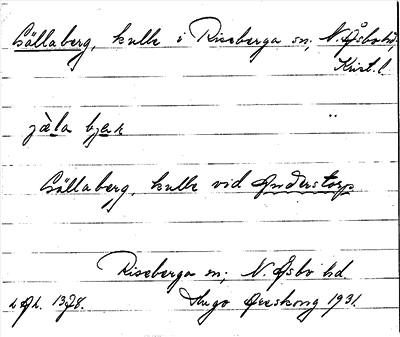 Gällaberg, kulle i Riseberga sn; N. Åsbo hd,
Krist. l.
jäla bjar
Gällaberg, kulle vid Anderstorp
Riseberga sn; N. Åsbo hd
1378. Hugo Areskoug 1931.